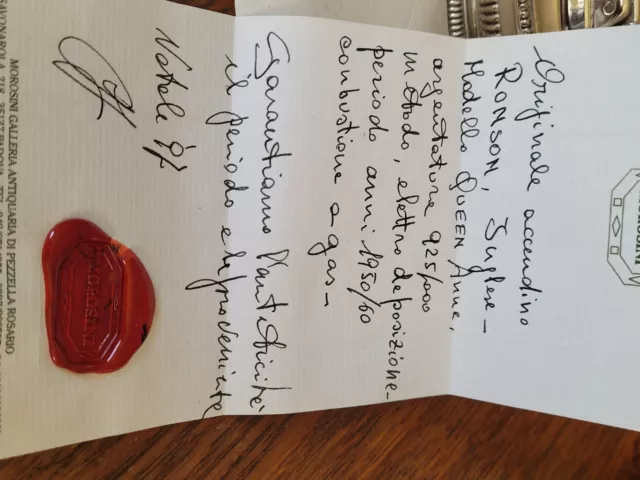 MOROSINI
Originale accendino
RONSON, Inglese -
Modello QUEEN Anne,
argentatura 925/000
metodo, elettro deposizione -
periodo anni 1950/60
combustione a gas -
Garantiamo l'autenticità
il periodo e la provenienza
Natale 97
MOROSINI
MOROSINI GALLERIA ANTIQUARIA DI PEZZELLA ROSARIO
SAVONAROLA, 218 35137 PADOVA